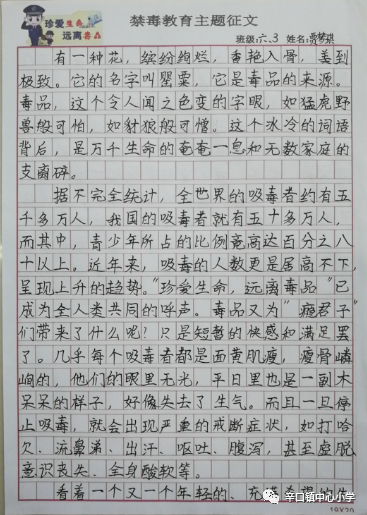 珍爱生命
远离毒品
禁毒教育主题征文
班级:六.3 姓名:
有一种花，缤纷绚烂，香艳入骨，美到
极致。它的名字叫罂粟，它是毒品的来源。
毒品，这个令人闻之色变的字眼，如猛虎野
兽般可怕，如豺狼般可憎。这个冰冷的词语
背后，是万千生命的奄奄一息和无数家庭的
支离碎。
据不完全统计，全世界的吸毒者约有五
千多万人，我国的吸毒者就有五十多万人，
而其中，青少年所占的比例竟高达百分之八
十以上。近年来，吸毒的人数更是居高不下，
呈现上升的趋势。“珍爱生命，远离毒品”已
成为全人类共同的呼声。毒品又为“瘾君子”
们带来了什么呢？只是短暂的快感和满足罢
了。几乎每个吸毒者都是面黄肌瘦，瘦骨嶙
峋的，他们的眼里无光，平日里也是一副木
呆呆的样子，好像失去了生气。而且一旦停
止吸毒，就会出现严重的戒断症状，如打哈
欠、流鼻涕、出汗、呕吐、腹泻，甚至虚脱、
意识丧失、全身酸软等。
看着一个又一个年轻的、充满希望的生
辛口镇中心小学